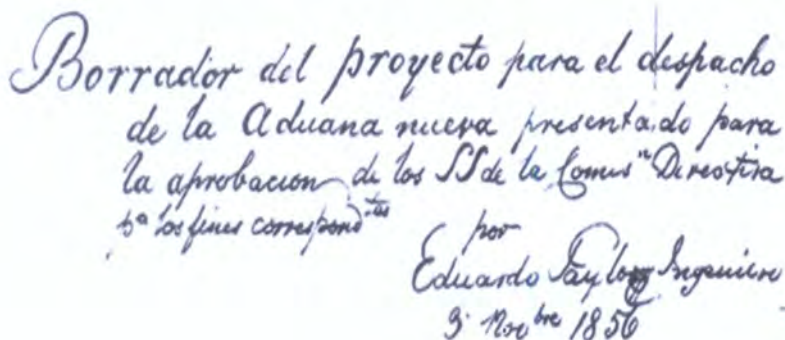 Borrador del proyecto para el despacho
de la Aduana nueva presentado para
la aprobacion de los SS de la Comisn Directiva
pa los fines correspondtes
por
Eduardo Taylor Ingeniero
3 Novbre 1856